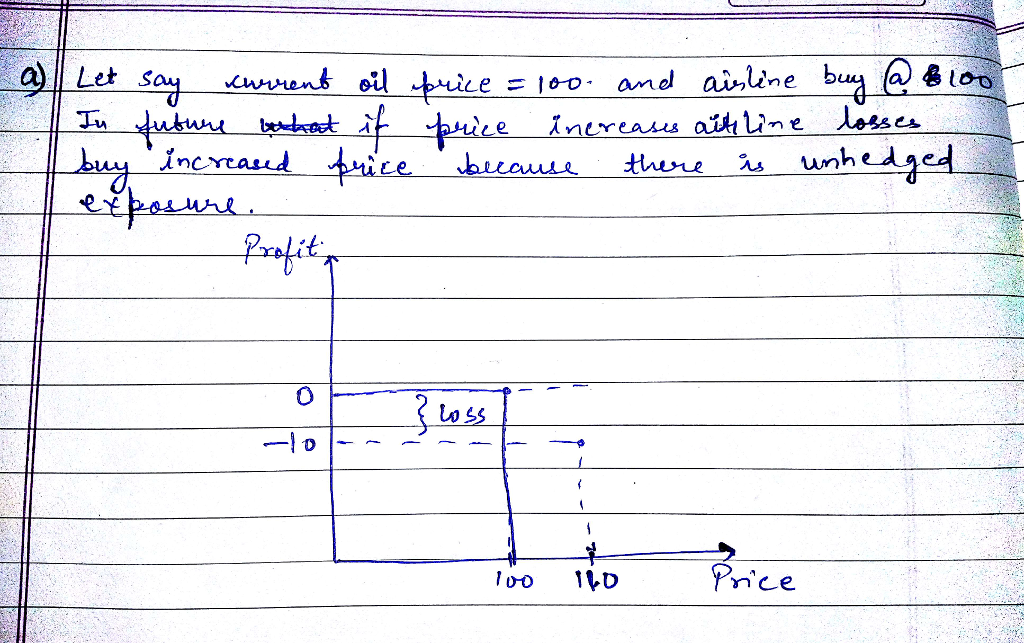 a) Let say current oil price = 100. and airline buy @ $100
In future what if price increases airline losses
buy increased price because there is unhedged
exposure.
Profit
0
} loss
-10
100 110 Price